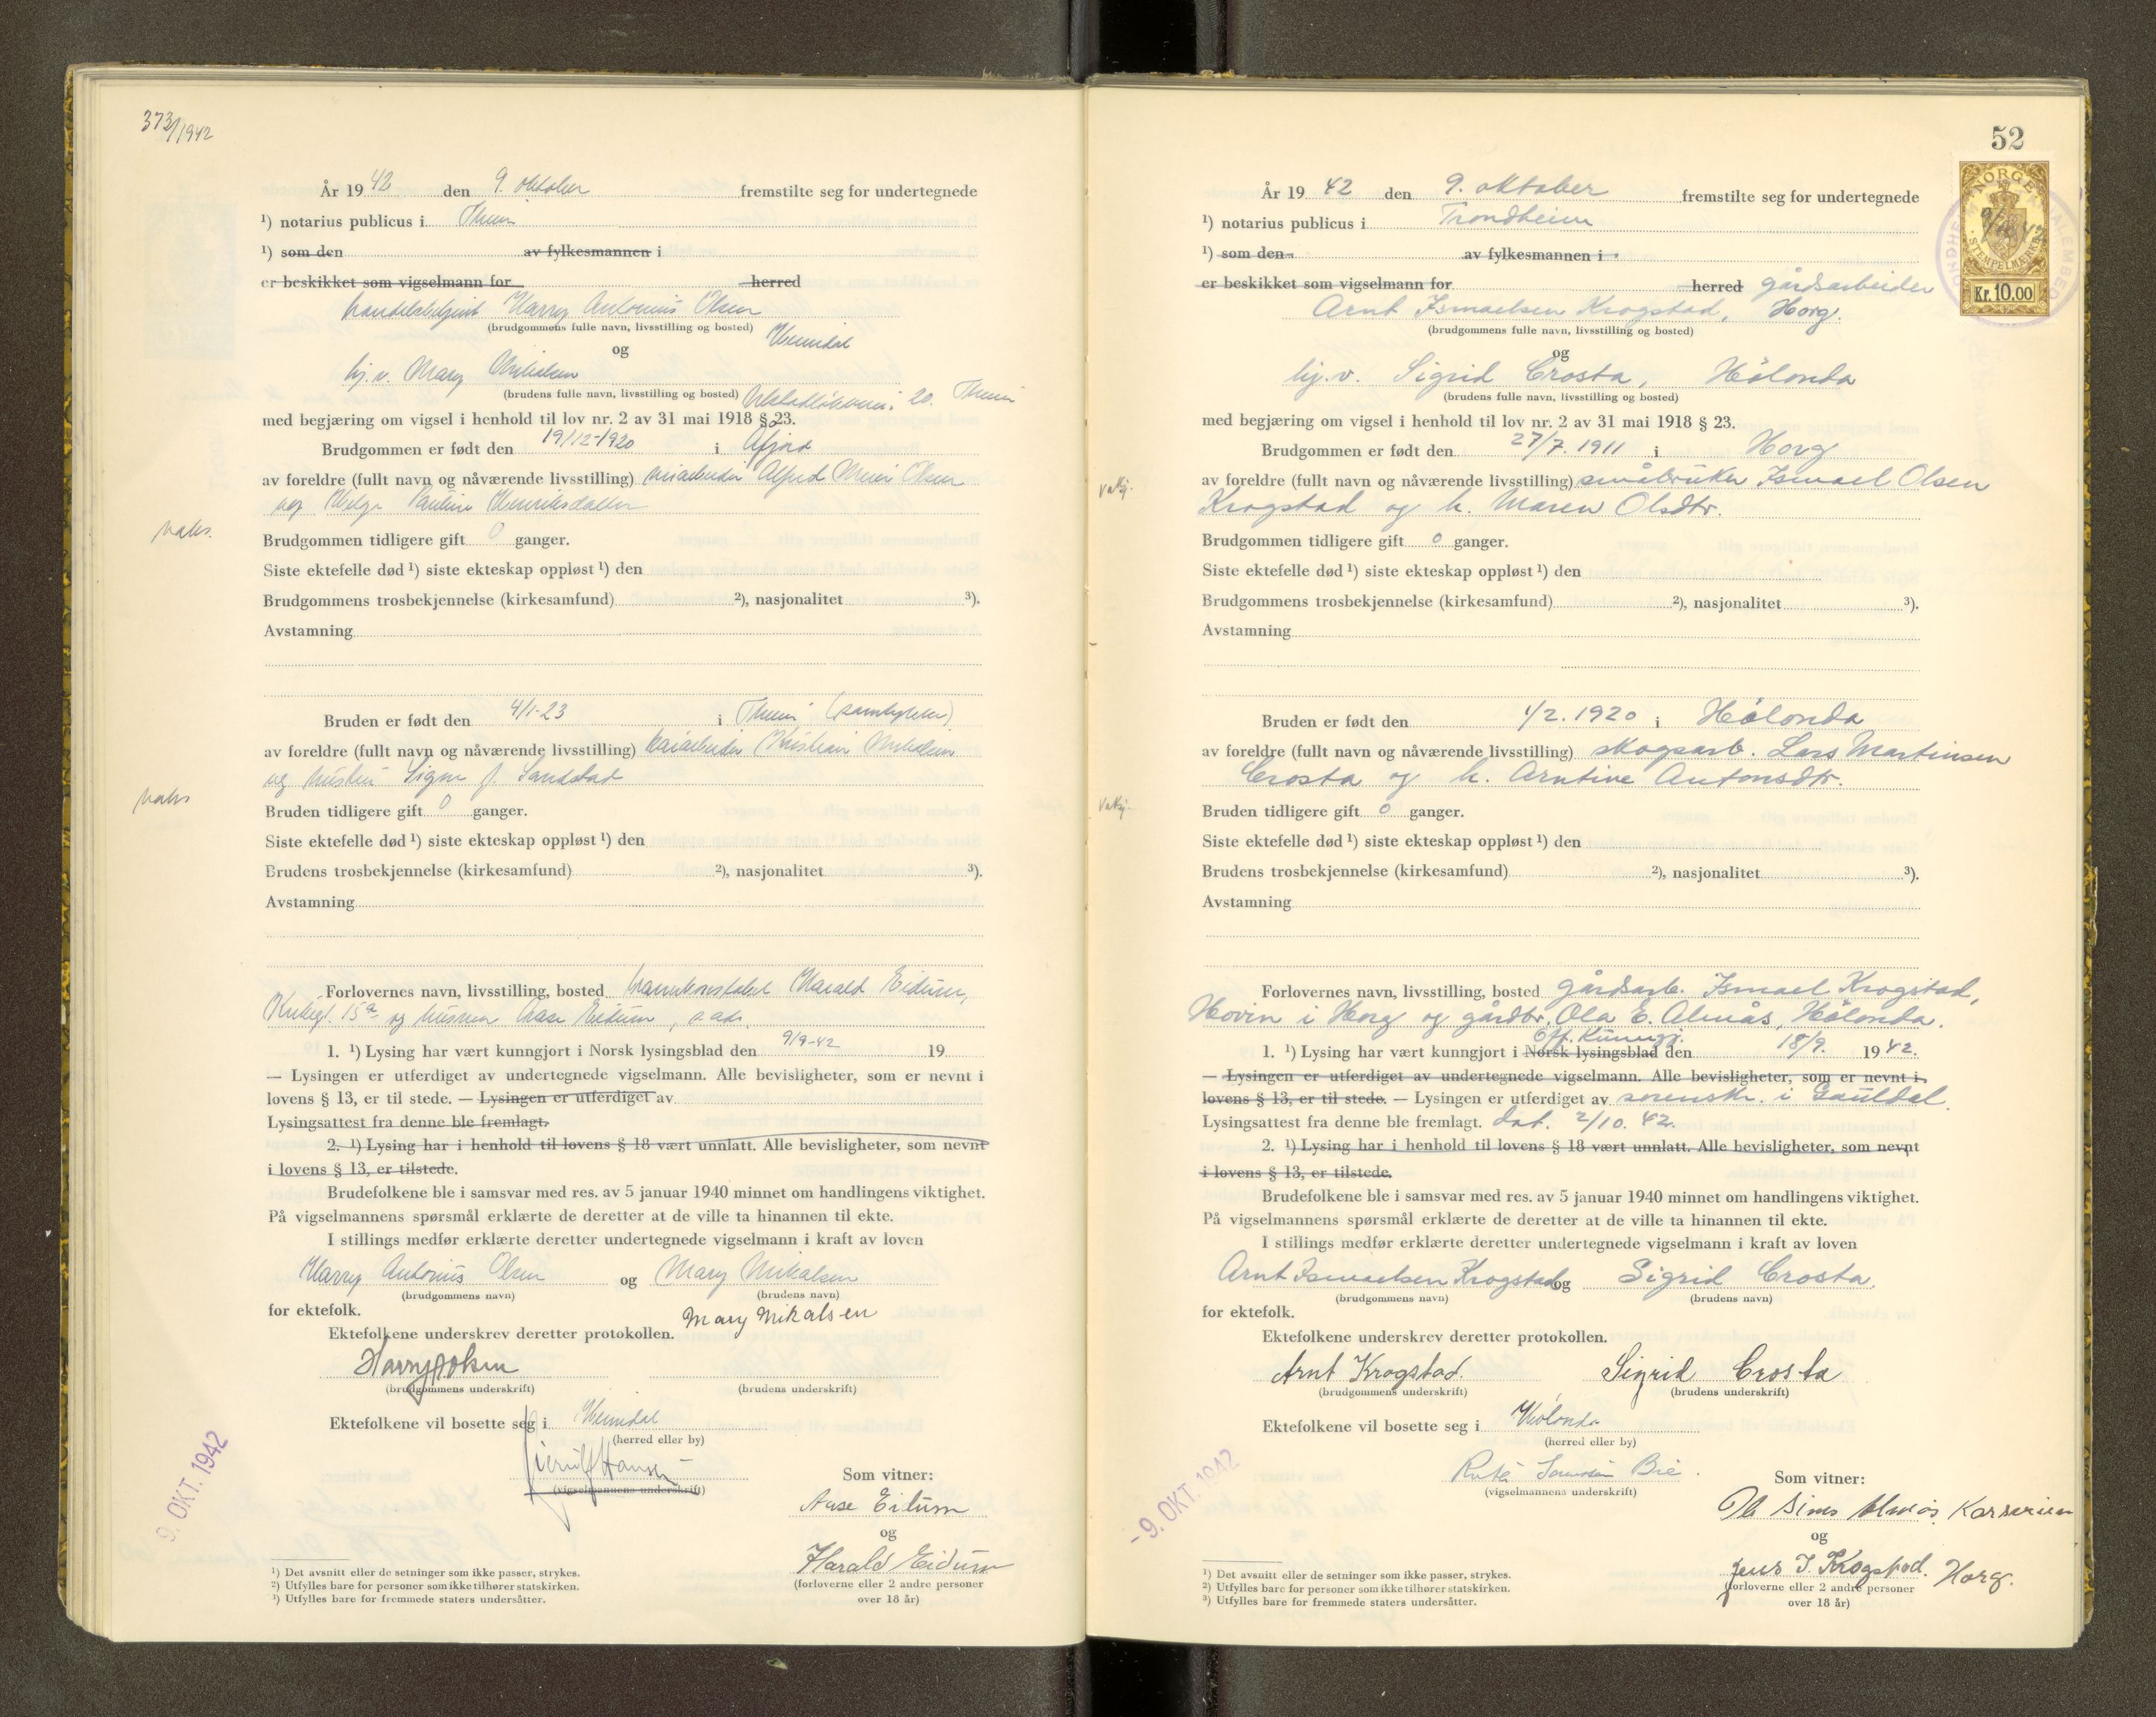 373/1942
År 1942 den 9. oktober fremstilte seg for undertegnede
¹) notarius publicus i Thm
¹) som den av fylkesmannen i
er beskikket som vigselmann for herred
handelsbetjent Harry Antonius Olsen
(brudgommens fulle navn, livsstilling og bosted) Heimdal
og
hj.v. Mary Mikalsen
(brudens fulle navn, livsstilling og bosted) 20. Thm
med begjæring om vigsel i henhold til lov nr. 2 av 31 mai 1918 § 23.
Brudgommen er født den 19/12-1920 i Åfjord
av foreldre (fullt navn og nåværende livsstilling) Alfred Olsen
og Helga Pauline Henriksdatter
vaks.
Brudgommen tidligere gift 0 ganger.
Siste ektefelle død ¹) siste ekteskap oppløst ¹) den
Brudgommens trosbekjennelse (kirkesamfund) ²), nasjonalitet ³).
Avstamning
Bruden er født den 4/1-23 i Thm (samtykke)
av foreldre (fullt navn og nåværende livsstilling) kaiarbeider Kristian Mikalsen
og hustru Signe f. Sandstad
vaks
Bruden tidligere gift 0 ganger.
Siste ektefelle død ¹) siste ekteskap oppløst ¹) den
Brudens trosbekjennelse (kirkesamfund) ²), nasjonalitet ³).
Avstamning
Forlovernes navn, livsstilling, bosted Harald Eidum,
15a og hustru Aase Eidum, s. adr.
1. ¹) Lysing har vært kunngjort i Norsk lysingsblad den 9/9-42 19
— Lysingen er utferdiget av undertegnede vigselmann. Alle bevisligheter, som er nevnt i
lovens § 13, er til stede. — Lysingen er utferdiget av
Lysingsattest fra denne ble fremlagt.
2. ¹) Lysing har i henhold til lovens § 18 vært unnlatt. Alle bevisligheter, som nevnt
i lovens § 13, er tilstede.
Brudefolkene ble i samsvar med res. av 5 januar 1940 minnet om handlingens viktighet.
På vigselmannens spørsmål erklærte de deretter at de ville ta hinannen til ekte.
I stillings medfør erklærte deretter undertegnede vigselmann i kraft av loven
Harry Antonius Olsen og Mary Mikalsen
(brudgommens navn) (brudens navn)
for ektefolk.
Mary Mikalsen
Ektefolkene underskrev deretter protokollen.
Harry A Olsen
(brudgommens underskrift) (brudens underskrift)
Ektefolkene vil bosette seg i Heimdal
(herred eller by)
Hansen
(vigselmannens underskrift)
Som vitner:
Aase Eidum
og
Harald Eidum
(forloverne eller 2 andre personer
over 18 år)
9. OKT. 1942
¹) Det avsnitt eller de setninger som ikke passer, strykes.
²) Utfylles bare for personer som ikke tilhører statskirken.
³) Utfylles bare for fremmede staters undersåtter.
52
NORGE
9/10 42
STEMPELMERKE
Kr. 10.00
År 1942 den 9. oktober fremstilte seg for undertegnede
¹) notarius publicus i Trondheim
¹) som den av fylkesmannen i
er beskikket som vigselmann for herred gårdsarbeider
Arnt Ismaelsen Krogstad, Horg.
(brudgommens fulle navn, livsstilling og bosted)
og
hj.v. Sigrid Crosta, Hölonda
(brudens fulle navn, livsstilling og bosted)
med begjæring om vigsel i henhold til lov nr. 2 av 31 mai 1918 § 23.
Brudgommen er født den 27/7. 1911 i Horg
av foreldre (fullt navn og nåværende livsstilling) småbruker Ismael Olsen
Krogstad og h. Maren Olsdtr.
Brudgommen tidligere gift 0 ganger.
Siste ektefelle død ¹) siste ekteskap oppløst ¹) den
Brudgommens trosbekjennelse (kirkesamfund) ²), nasjonalitet ³).
Avstamning
Bruden er født den 1/2. 1920 i Hölonda
av foreldre (fullt navn og nåværende livsstilling) skogsarb. Lars Martinsen
Crosta og h. Arntine Antonsdtr.
Bruden tidligere gift 0 ganger.
Siste ektefelle død ¹) siste ekteskap oppløst ¹) den
Brudens trosbekjennelse (kirkesamfund) ²), nasjonalitet ³).
Avstamning
Forlovernes navn, livsstilling, bosted gårdsarb. Ismael Krogstad,
Hovin i Horg og gårdbr. Ola E. Almås, Hölonda.
Off. Kunngj.
1. ¹) Lysing har vært kunngjort i Norsk lysingsblad den 18/9. 1942.
— Lysingen er utferdiget av undertegnede vigselmann. Alle bevisligheter, som er nevnt i
lovens § 13, er til stede. — Lysingen er utferdiget av sorenskr. i Gauldal.
Lysingsattest fra denne ble fremlagt. dat. 2/10. 42.
2. ¹) Lysing har i henhold til lovens § 18 vært unnlatt. Alle bevisligheter, som nevnt
i lovens § 13, er tilstede.
Brudefolkene ble i samsvar med res. av 5 januar 1940 minnet om handlingens viktighet.
På vigselmannens spørsmål erklærte de deretter at de ville ta hinannen til ekte.
I stillings medfør erklærte deretter undertegnede vigselmann i kraft av loven
Arnt Ismaelsen Krogstad og Sigrid Crosta
(brudgommens navn) (brudens navn)
for ektefolk.
Ektefolkene underskrev deretter protokollen.
Arnt Krogstad. Sigrid Crosta
(brudgommens underskrift) (brudens underskrift)
Ektefolkene vil bosette seg i Hölonda
(herred eller by)
Bie.
(vigselmannens underskrift)
Som vitner:
Almås
og
Jens I. Krogstad. Horg.
(forloverne eller 2 andre personer
over 18 år)
- 9. OKT. 1942
¹) Det avsnitt eller de setninger som ikke passer, strykes.
²) Utfylles bare for personer som ikke tilhører statskirken.
³) Utfylles bare for fremmede staters undersåtter.